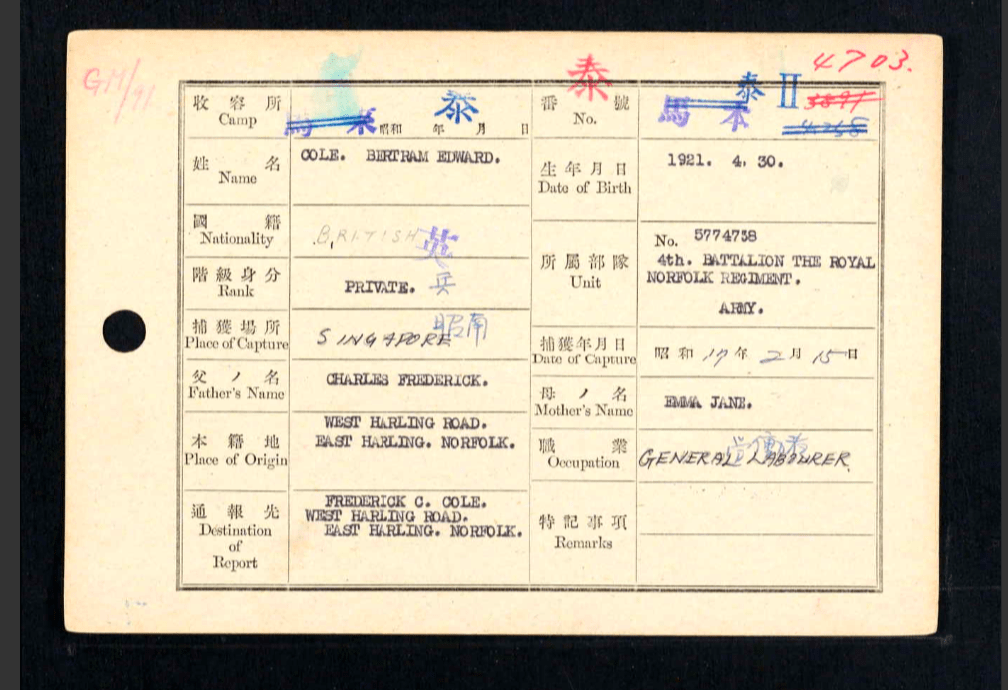 GM/91
泰
4703.
收容所
Camp
馬來 泰
昭和 年 月 日
番號
No.
馬本 泰 II
3891
姓名
Name
COLE. BERTRAM EDWARD.
生年月日
Date of Birth
1921. 4. 30.
國籍
Nationality
BRITISH 英
階級身分
Rank
PRIVATE. 兵
所屬部隊
Unit
No. 5774738
4th. BATTALION THE ROYAL
NORFOLK REGIMENT.
ARMY.
捕獲場所
Place of Capture
SINGAPORE 昭南
捕獲年月日
Date of Capture
昭和 17 年 2 月 15 日
父ノ名
Father's Name
CHARLES FREDERICK.
母ノ名
Mother's Name
EMMA JANE.
本籍地
Place of Origin
WEST HARLING ROAD.
EAST HARLING. NORFOLK.
職業
Occupation
GENERAL LABOURER
通報先
Destination
of
Report
FREDERICK C. COLE.
WEST HARLING ROAD.
EAST HARLING. NORFOLK.
特記事項
Remarks